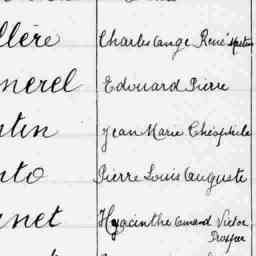 llère Charles Ange René
nerel Edouard Pierre
ntin Jean Marie Théophile
nto Pierre Louis Auguste
net Hyacinthe Amand Victor
Prosper